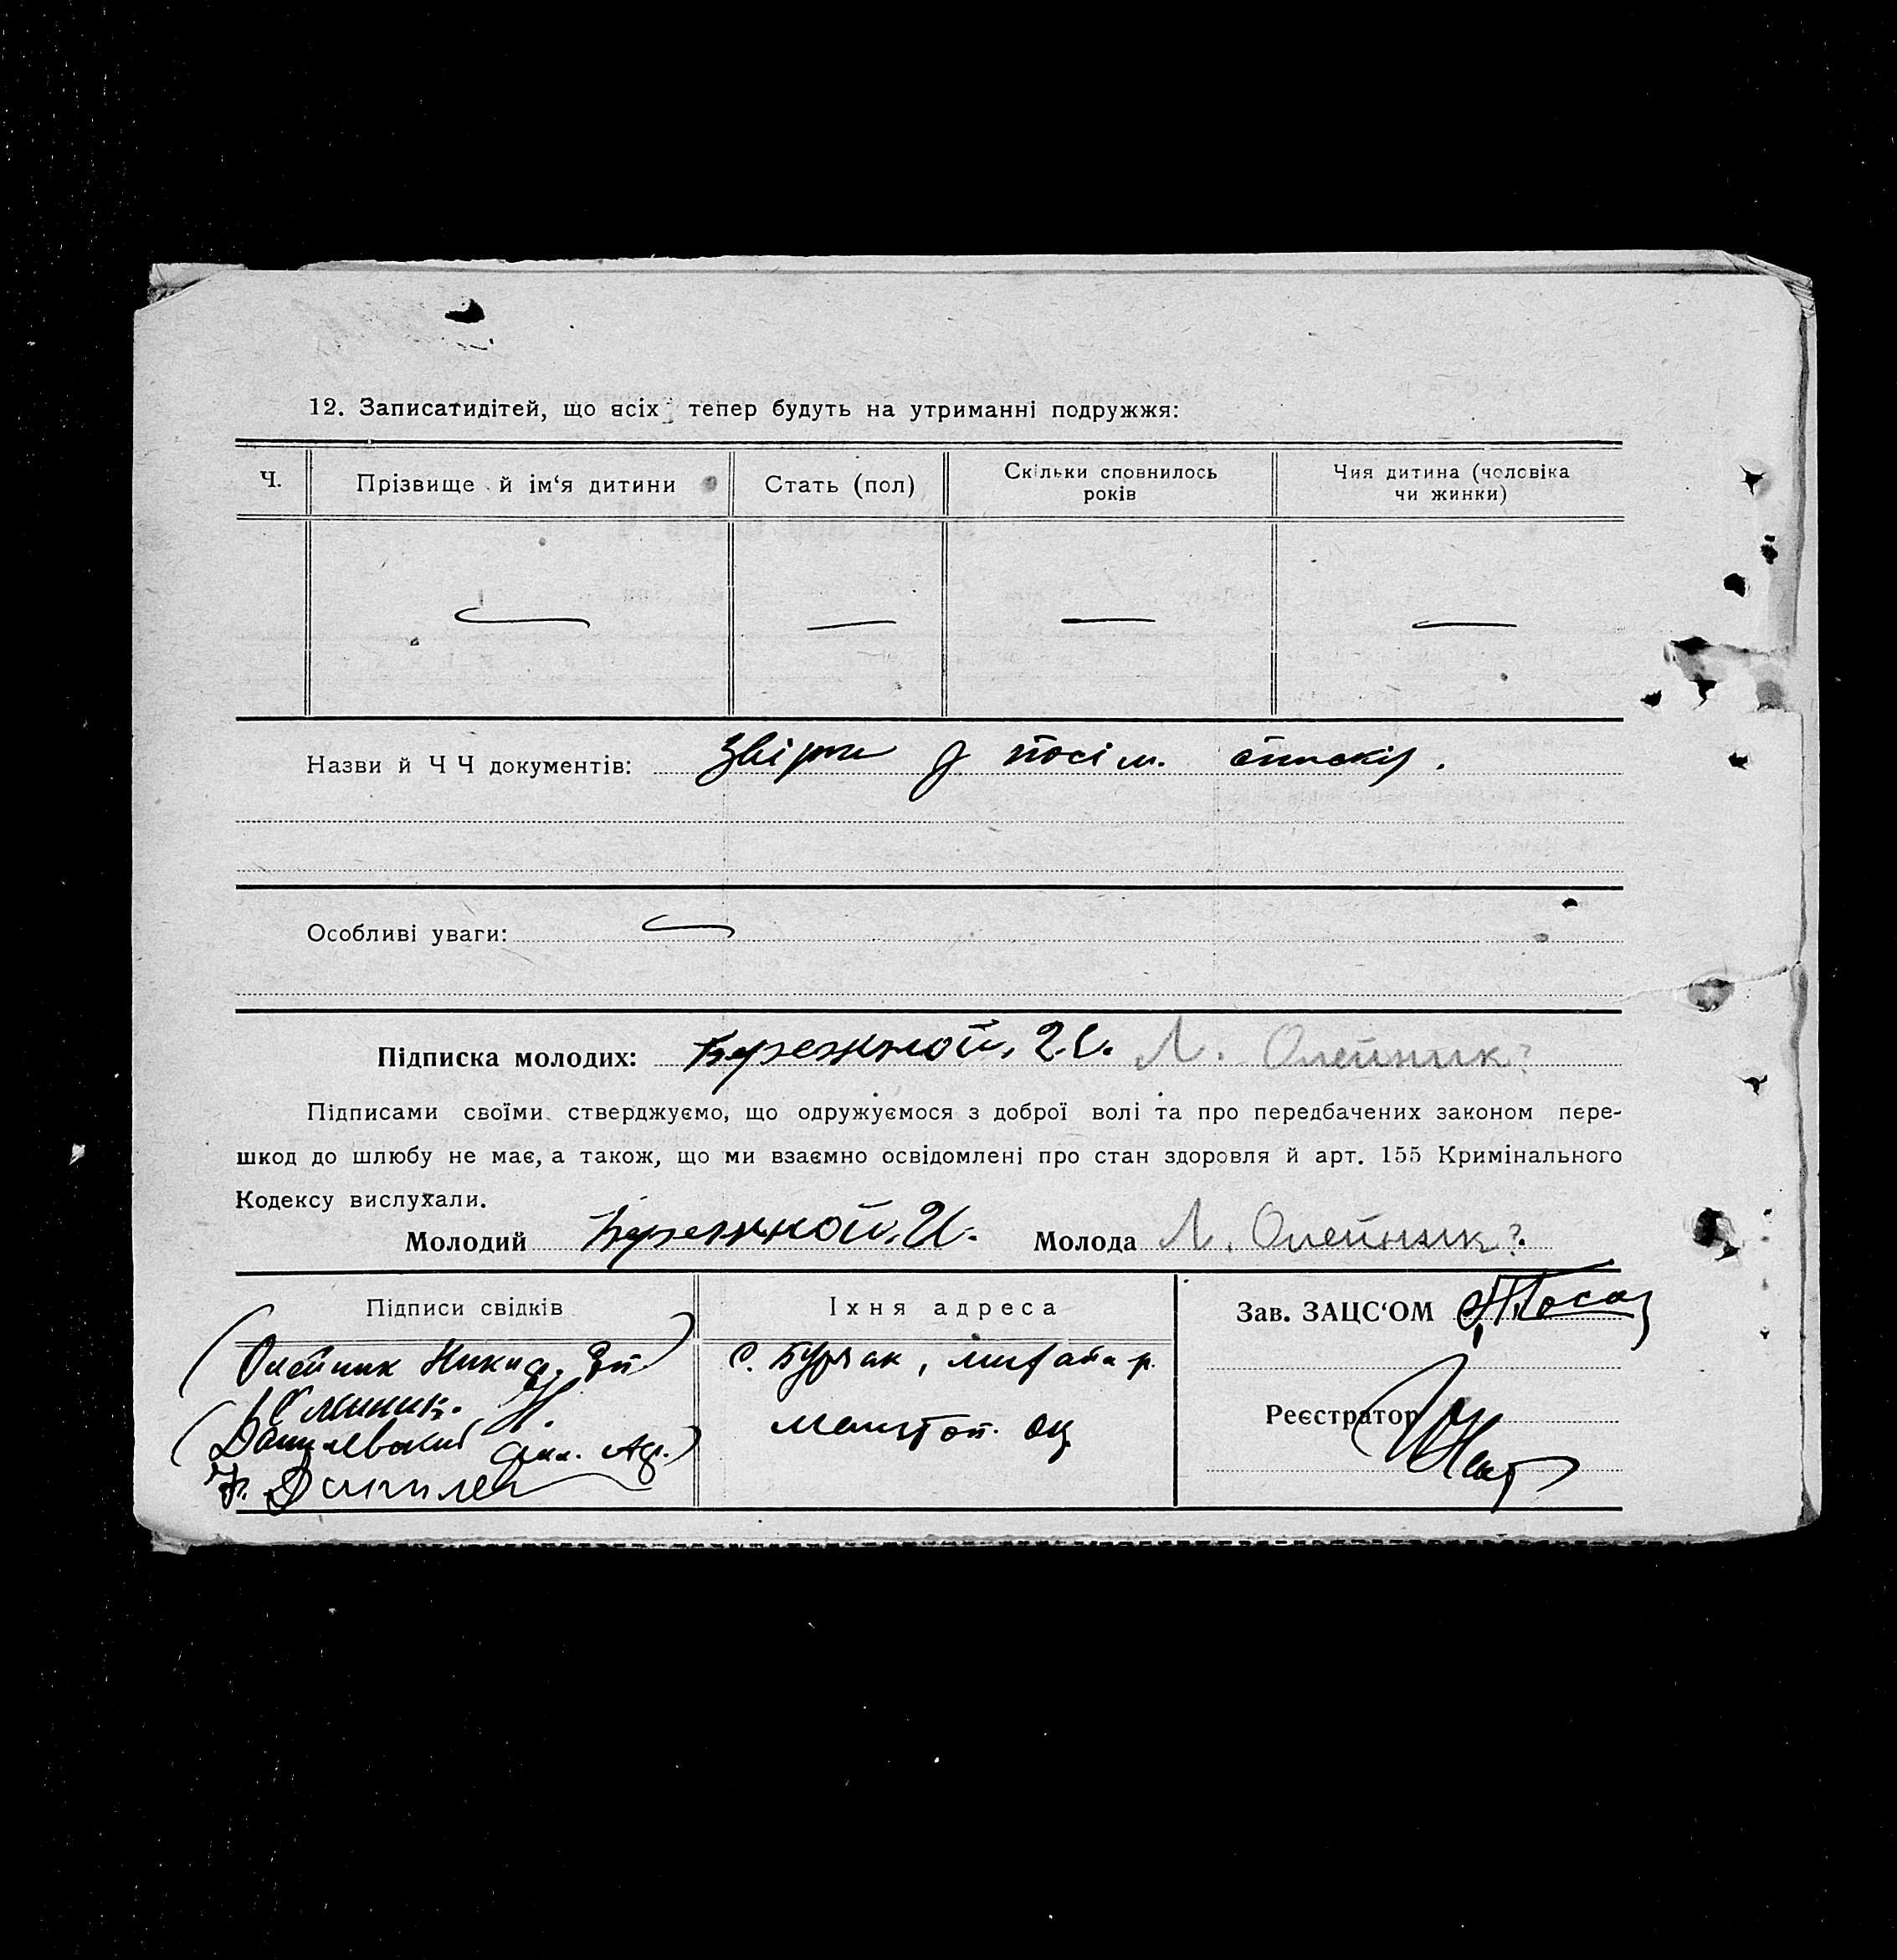 12. Записатидітей, що всіх тепер будуть на утриманні подружжя:
Ч. Прізвище й ім‘я дитини Стать (пол) Скільки сповнилось років Чия дитина (чоловіка чи жинки)
Назви й Ч Ч документів: посім.
Особливі уваги:
Підписка молодих: Бережной. Л. Олейник
Підписами своїми стверджуємо, що одружуємося з доброї волі та про передбачених законом пере-
шкод до шлюбу не має, а також, що ми взаємно освідомлені про стан здоровля й арт. 155 Кримінального
Кодексу вислухали.
Молодий Бережной. И. Молода Л. Олейник
Підписи свідків Їхня адреса Зав. ЗАЦС‘ОМ
Олейник Никиф. с. Бурчак,
Реєстратор